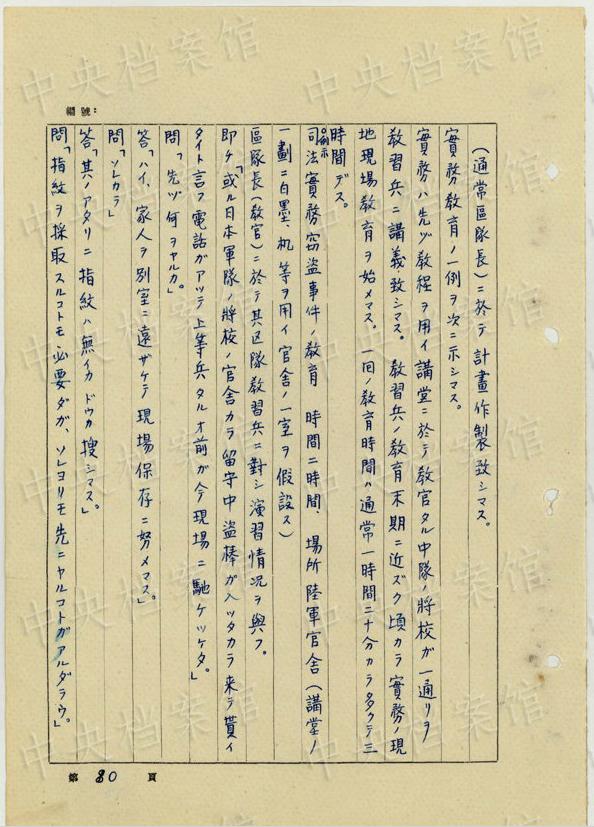 中央档案馆
編號：
（通常區隊長）ニ於テ計畫作製致シマス。
實務教育ノ一例ヲ次ニ示シマス。
實務ハ先ヅ教程ヲ用イ講堂ニ於テ教官タル中隊ノ將校ガ一通リヲ
教習兵ニ講義致シマス。教習兵ノ教育末期ニ近ズク頃カラ實務ノ現
地現場教育ヲ始メマス。一回ノ教育時間ハ通常一時間二十分カラ多クテ三
時間デス。
司法實務窃盗事件ノ教育 時間二時間、場所陸軍官舎（講堂ノ
一劃ニ白墨、机等ヲ用イ官舎ノ一室ヲ假設ス）
區隊長（教官）ニ於テ其区隊教習兵ニ對シ演習情況ヲ與フ。
即ケ「或ル日本軍隊ノ將校ノ官舎カラ留守中盗棒ガ入ツタカラ来テ貰イ
タイト言フ電話ガアツテ上等兵タルオ前ガ今現場ニ馳ケツケタ。」
問「先ヅ何ヲヤルカ。」
答「ハイ、家人ヲ別室ニ遠ザケテ現場保存ニ努メマス。」
問「ソレカラ」
答「其ノアタリニ指紋ハ無イカドウカ捜シマス。」
問「指紋ヲ採取スルコトモ必要ダガ、ソレヨリモ先ニヤルコトガアルダラウ。
第 80 頁